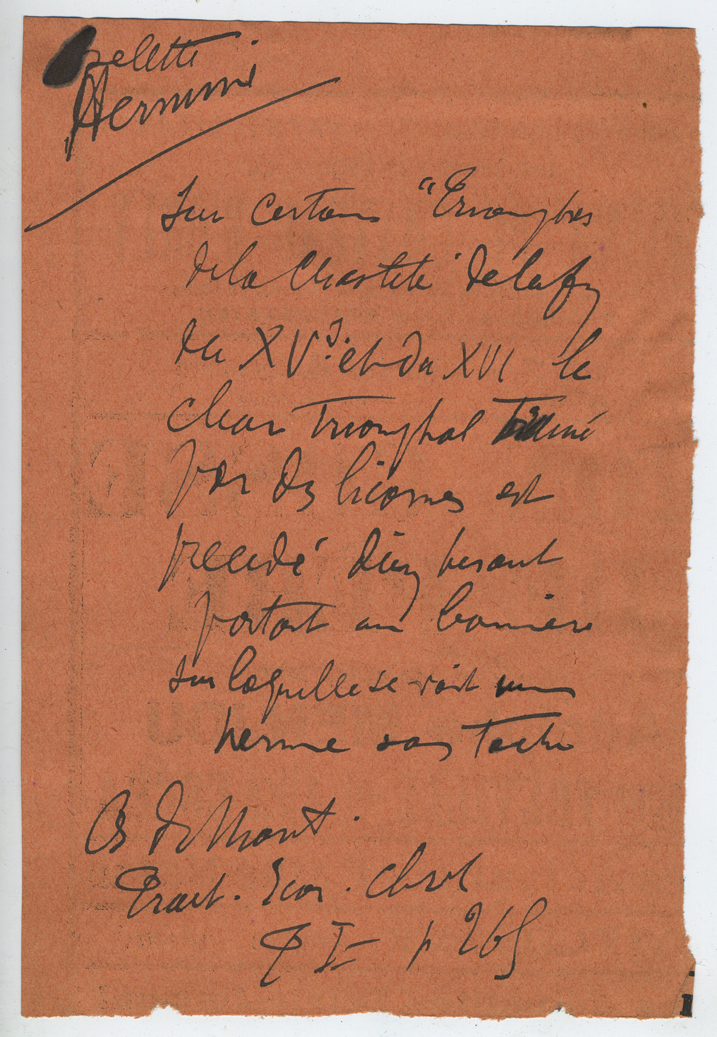 Hermine
Sur certains "Triomphes
de la Chasteté" de la fin
du XVe et du XVI le
char Triomphal
par des licornes est
précédé d'un
portant un bannière
sur laquelle se voit une
hermine sans Tache
Trait. Icon. chret
T I p 265